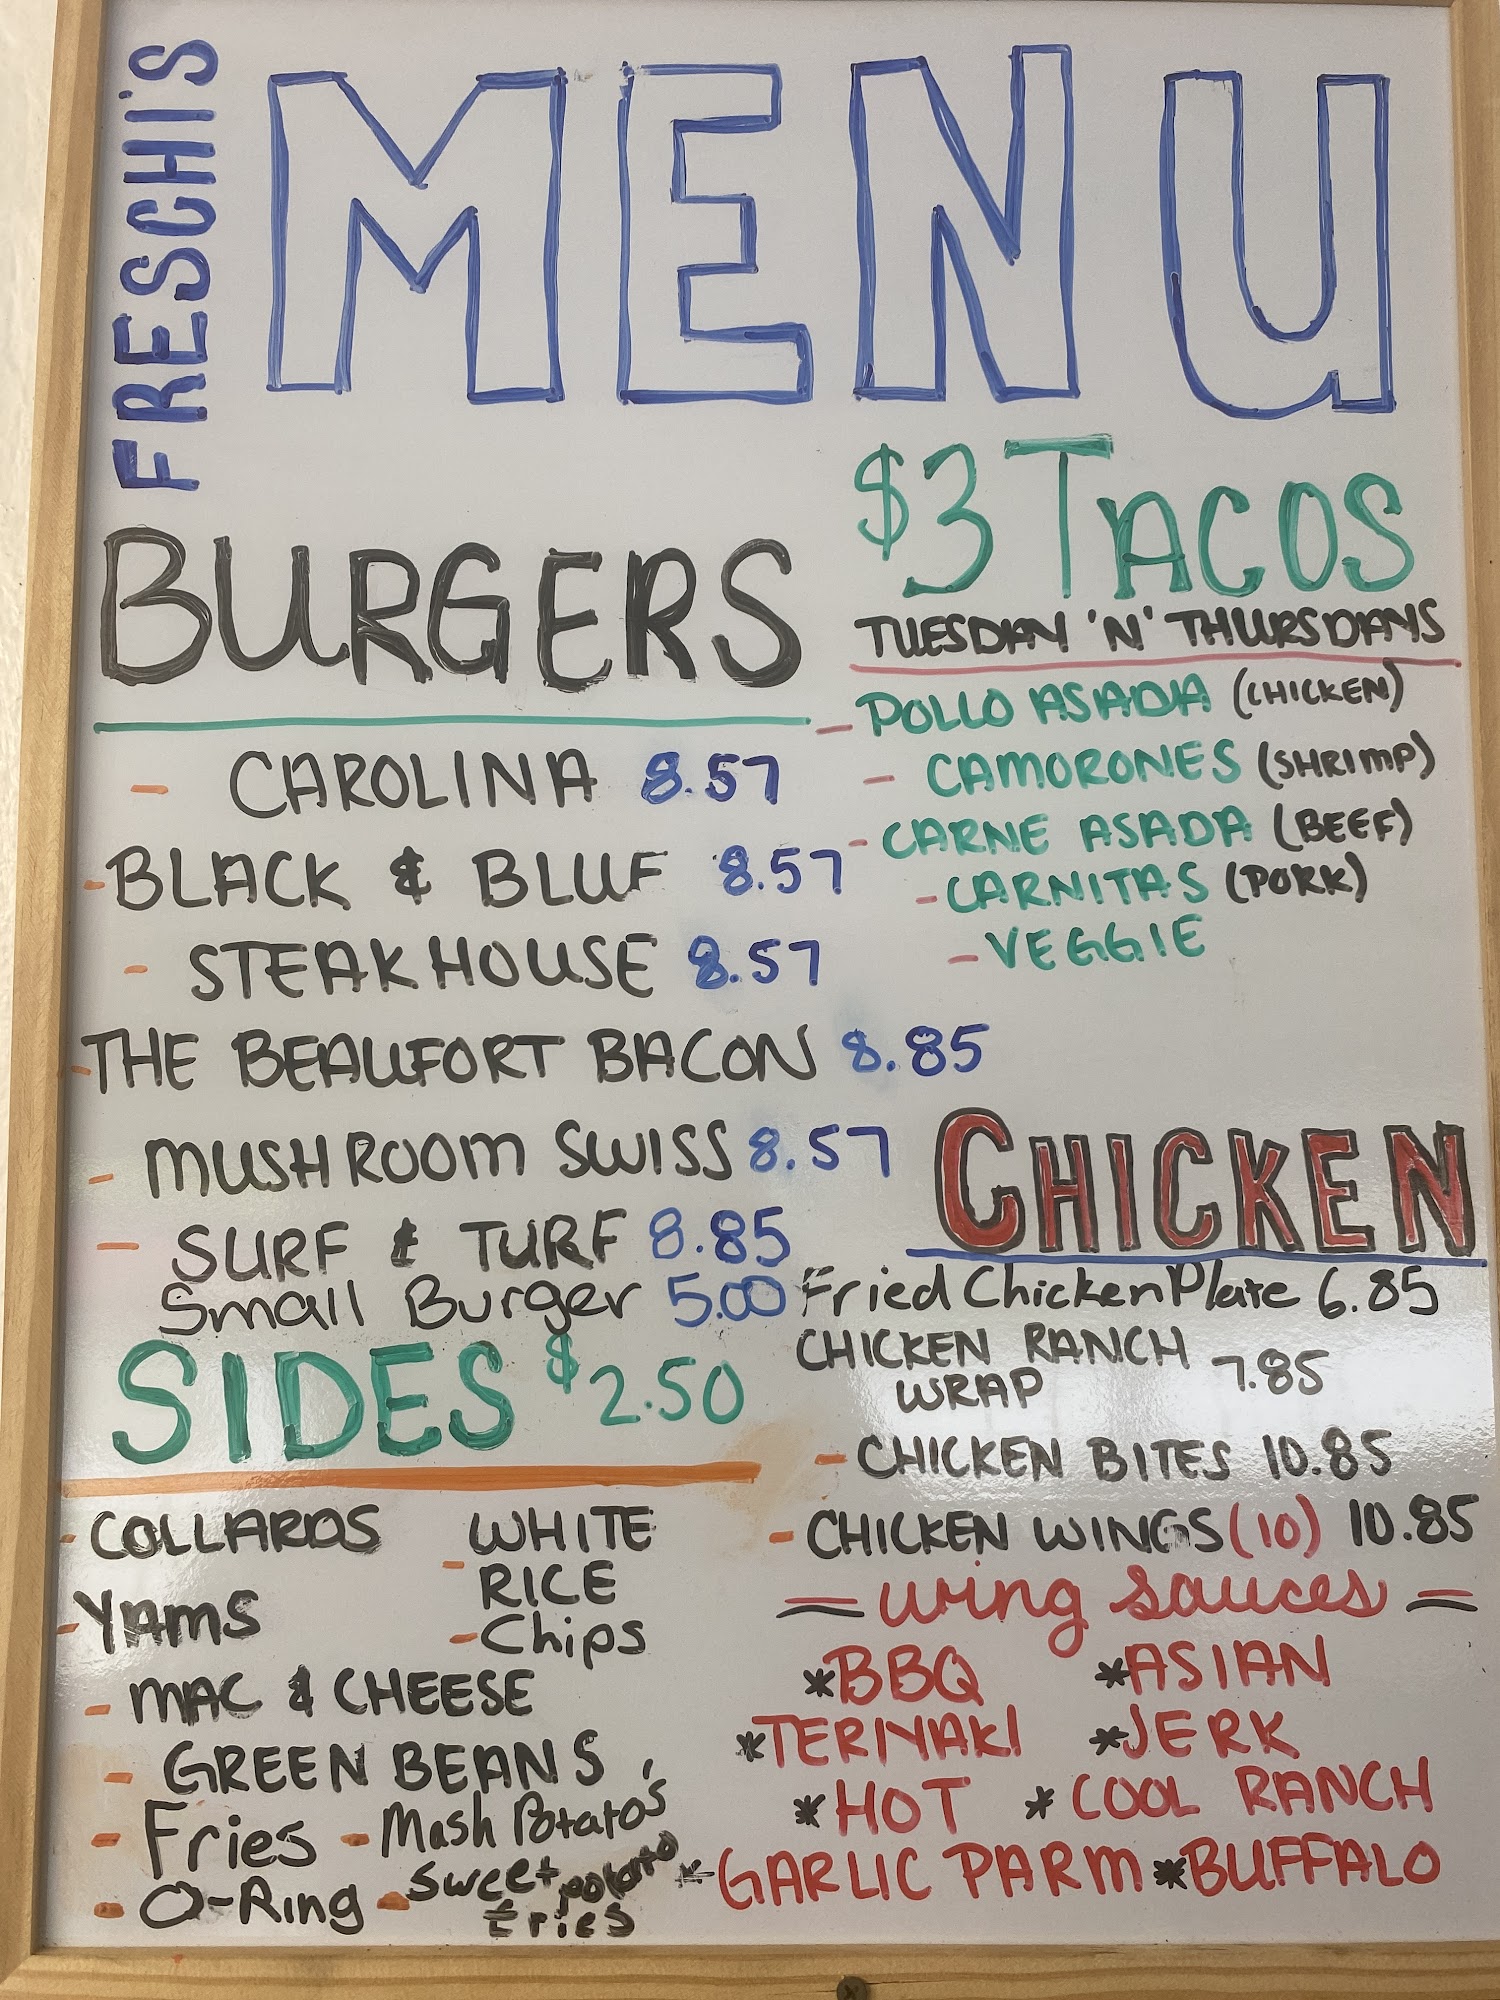 FRESCHI'S
MENU
BURGERS
- CAROLINA 8.57
- BLACK & BLUE 8.57
- STEAKHOUSE 8.57
- THE BEAUFORT BACON 8.85
- MUSHROOM SWISS 8.57
- SURF & TURF 8.85
Small Burger 5.00
$3 TACOS
TUESDAY 'N' THURSDAYS
- POLLO ASADA (CHICKEN)
- CAMORONES (SHRIMP)
- CARNE ASADA (BEEF)
- CARNITAS (PORK)
- VEGGIE
CHICKEN
Fried Chicken Plate 6.85
CHICKEN RANCH
WRAP 7.85
- CHICKEN BITES 10.85
- CHICKEN WINGS (10) 10.85
= wing sauces =
*BBQ *ASIAN
*TERIYAKI *JERK
*HOT * COOL RANCH
*GARLIC PARM *BUFFALO
SIDES $2.50
- COLLARDS
- YAMS
- MAC & CHEESE
- GREEN BEANS
- Fries
- O-Ring
- WHITE
RICE
- Chips
- Mash Potato's
- Sweet potato
Fries